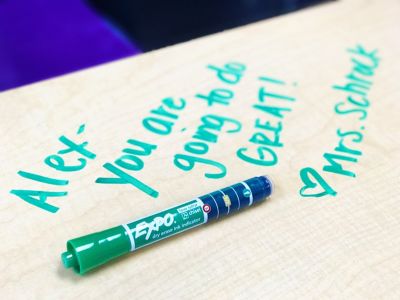 Alex-
You are
going to do
GREAT!
♡ Mrs. Schrock
EXPO
dry erase ink indicator